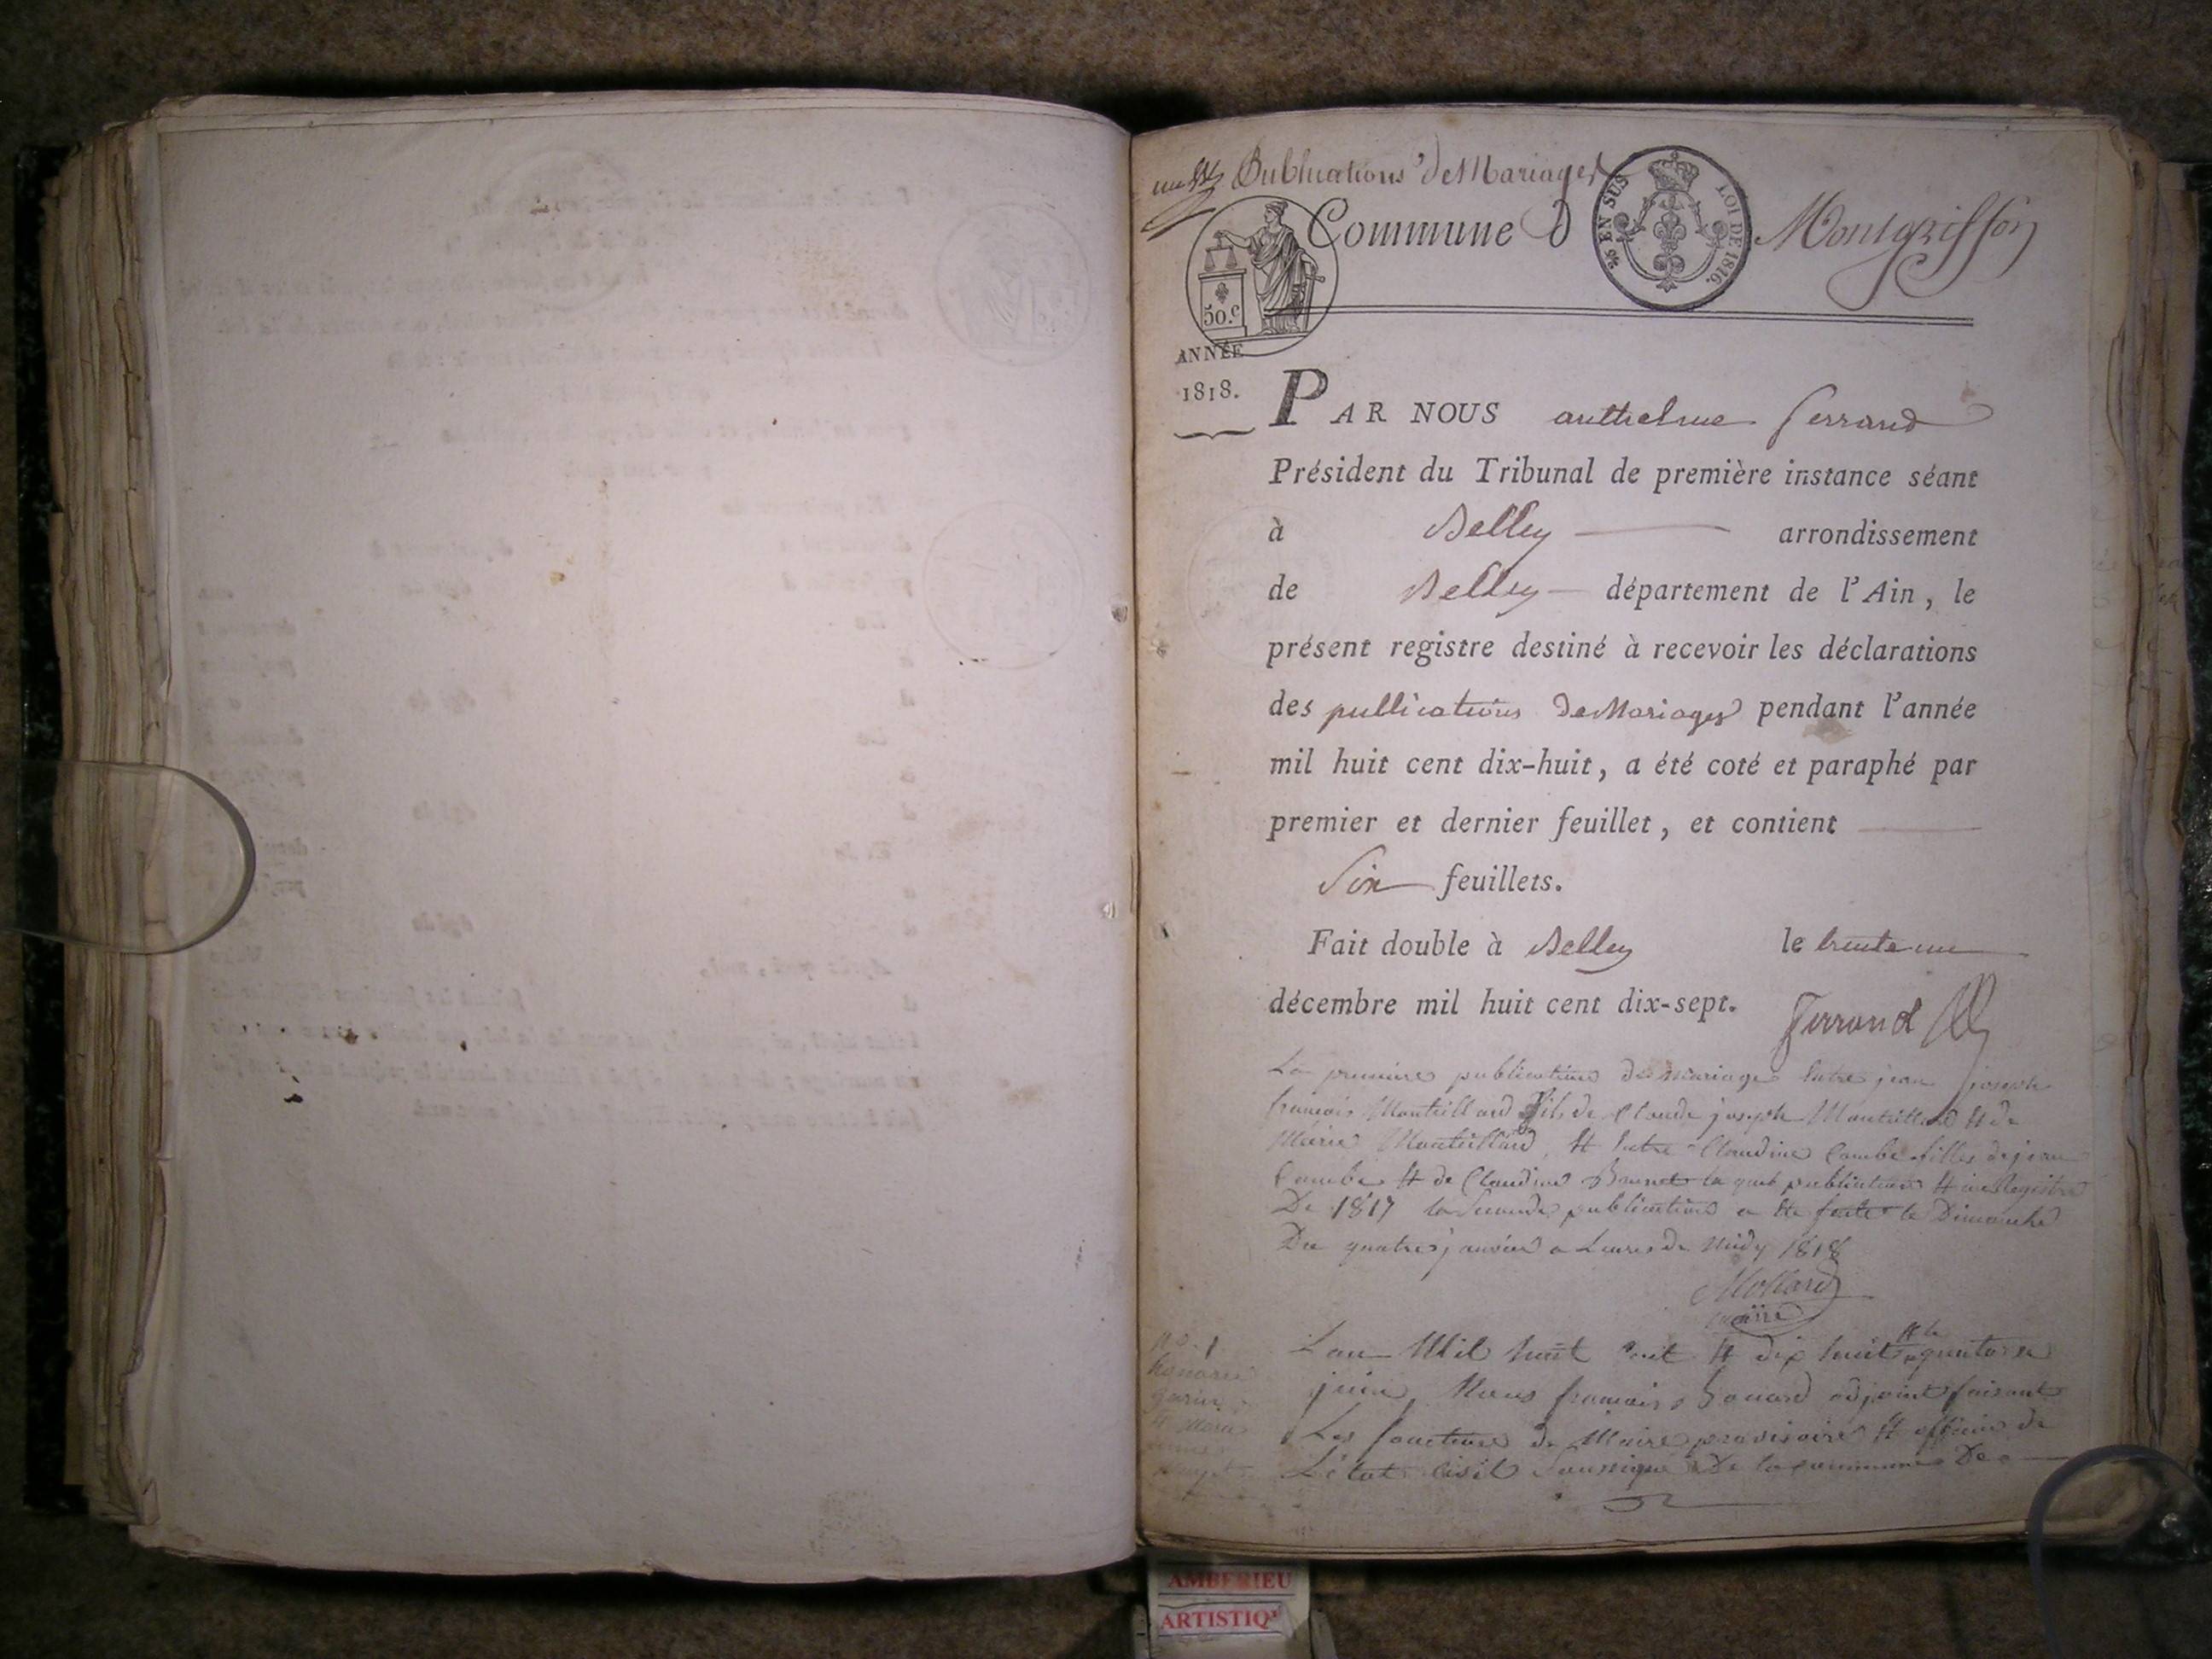 Publications de Mariages
Commune d Montgriffon
EN SUS LOI DE 1816.
50.c
ANNÉE
1818.
PAR NOUS anthelme ferrand
Président du Tribunal de première instance séant
à Belley arrondissement
de Belley département de l'Ain, le
présent registre destiné à recevoir les déclarations
des publications de Mariages pendant l'année
mil huit cent dix-huit, a été coté et paraphé par
premier et dernier feuillet, et contient
Six feuillets.
Fait double à Belley le trente un
décembre mil huit cent dix-sept. ferrand
La premiere publication de mariage Entre jean joseph
françois Monteillard fils de Claude joseph Monteillard Et de
Marie Monteillard, Et Entre Claudine Combe filles de jean
Combe Et de Claudine Brunet la publication registre
De 1817 la Seconde publication a Ete faite le Dimanche
Du quatre janvier a Leure de Midy 1818
Mollard
maire
no. 1
Lan Mil huit Cent Et dix huit Et le quatorze
juin, Nous françois adjoint faisant
Les fonctions de Maire provisoire Et officier de
L'état Civil Soussigné De la commune De
AMBERIEU
ARTISTIQ